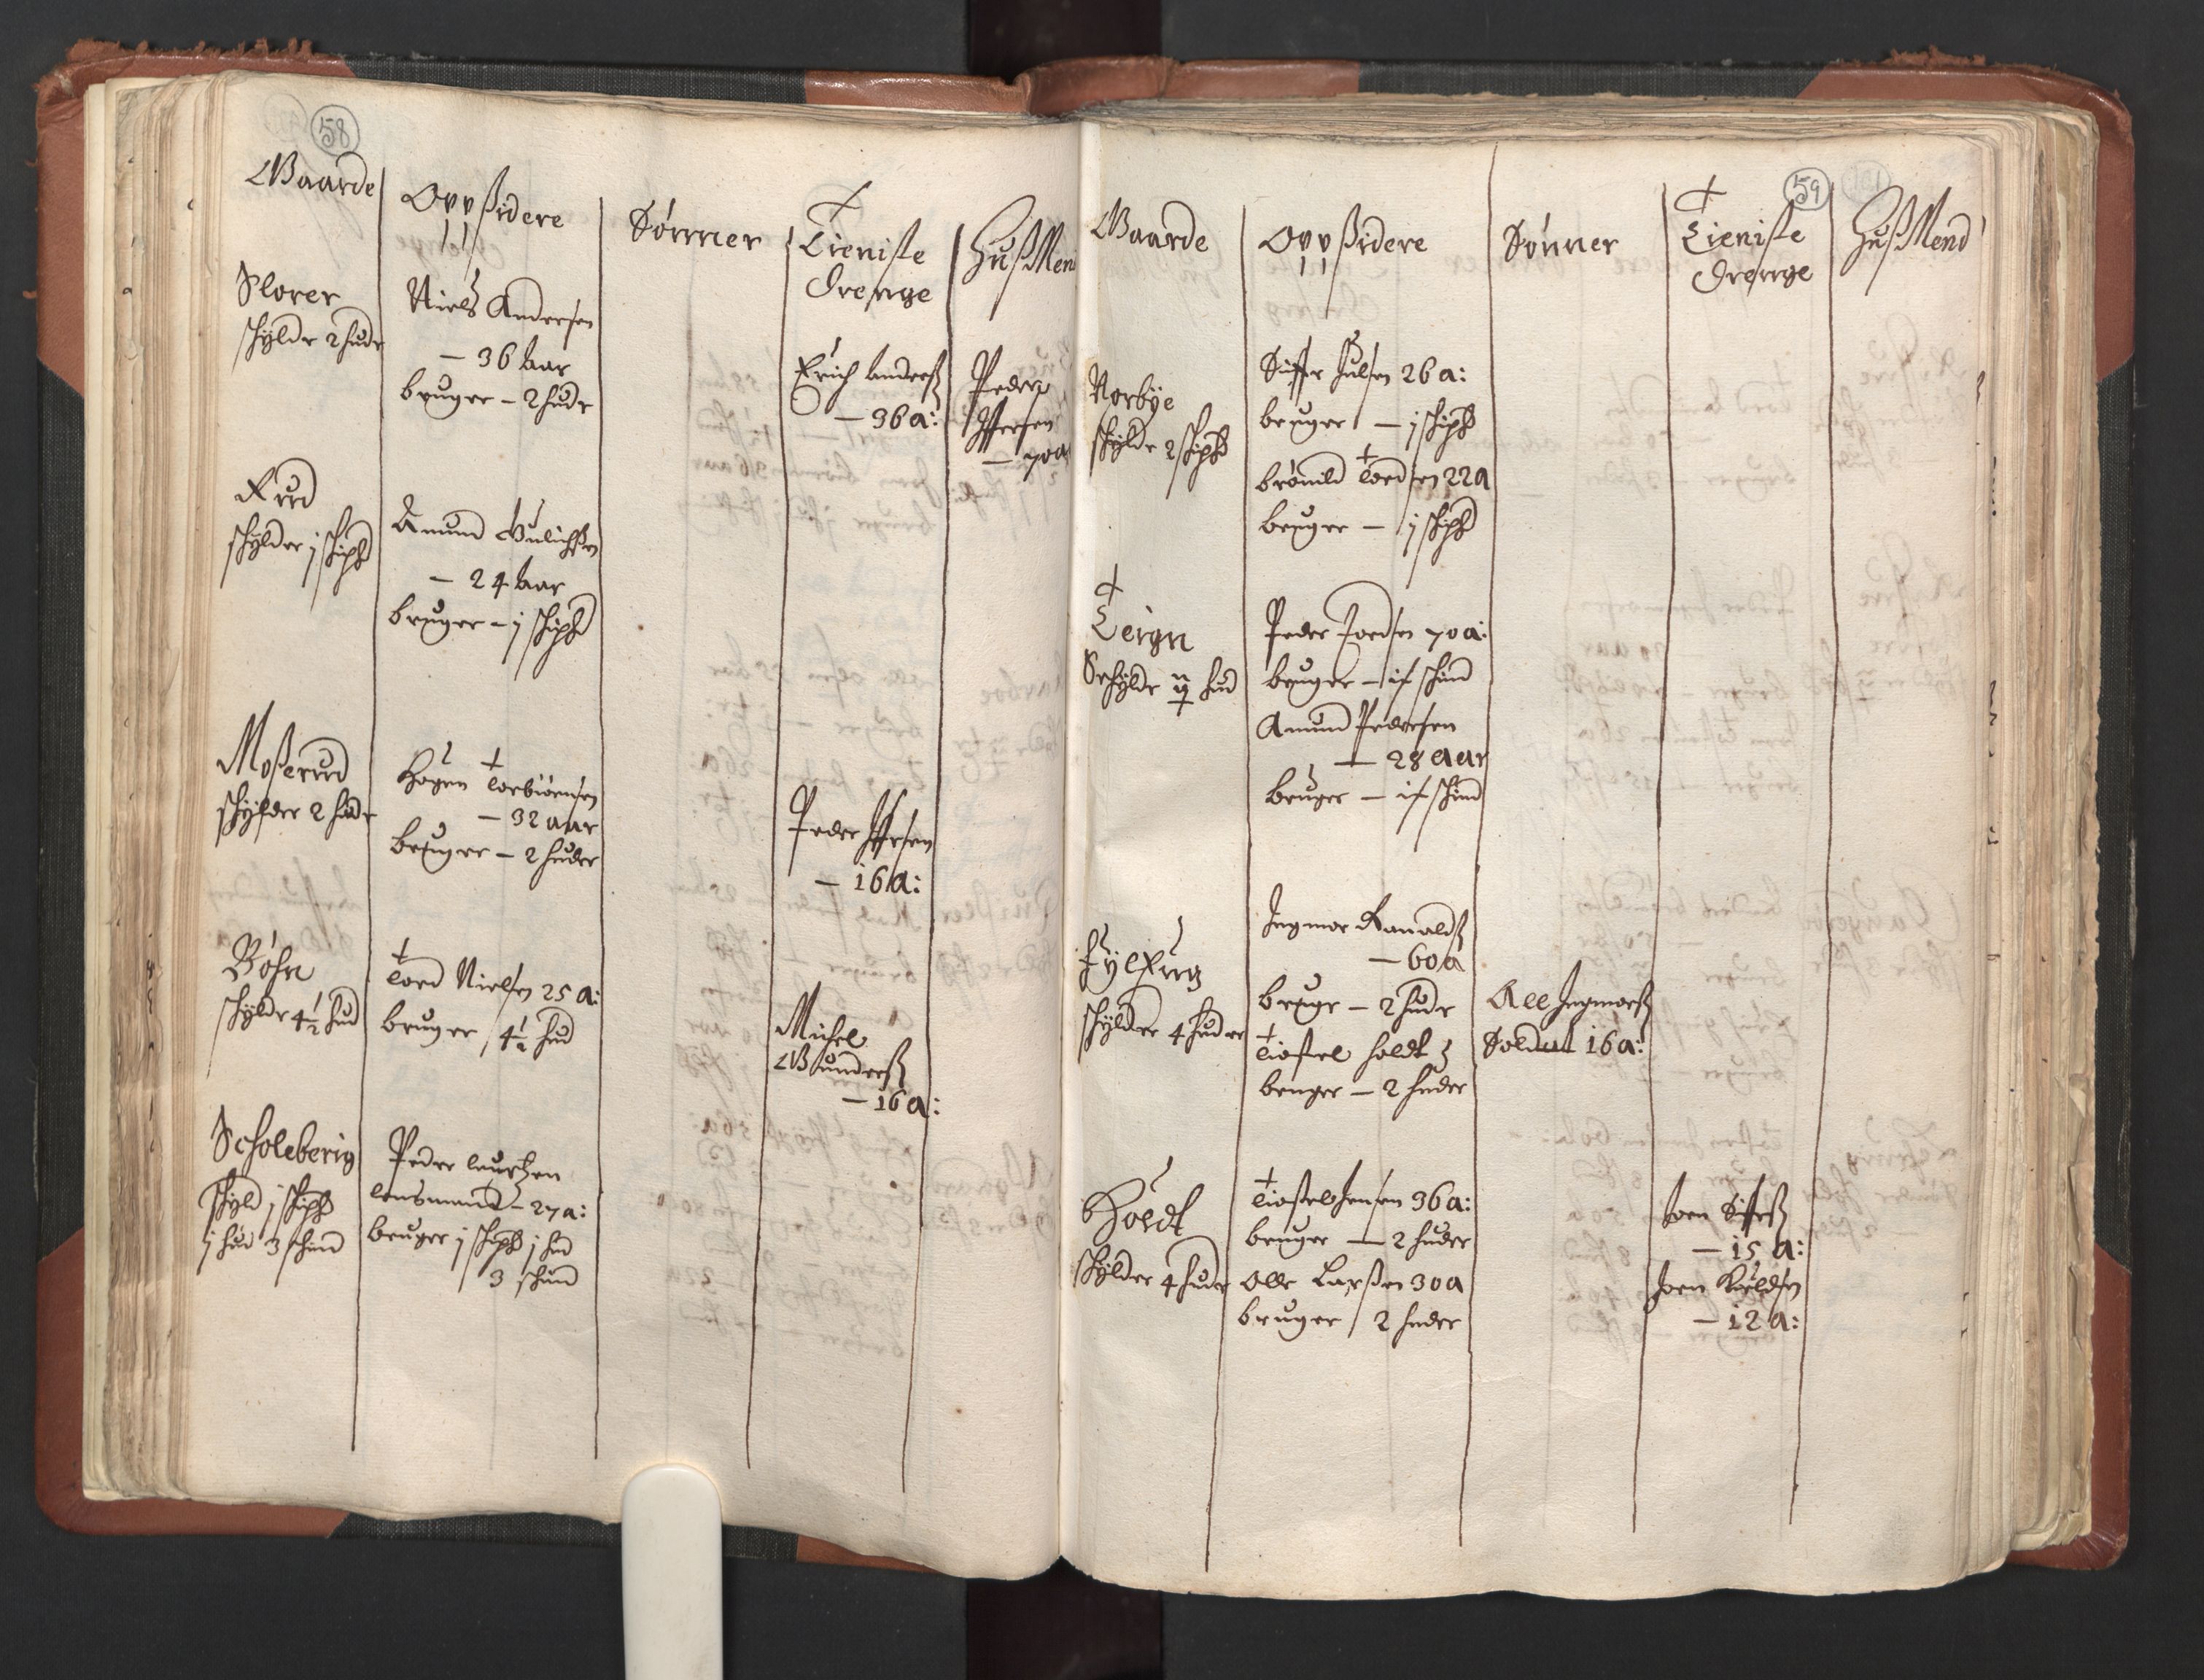 58
Gaarde
Opp Sidere
Sønner
Tieniste
Drenge
HusMend
Slorer
schylder 2 huder
Niels Andersen
— 36 Aar
bruger — 2 huder
Erich Anderss
— 36 a:
Peder
Iffersen
— 70 a
Rud
schylder j schipd
Amund Gulichssen
— 24 Aar
bruger — j schipd
Moserud
schylder 2 huder
Hagen Torbiørnsen
— 32 aar
bruger — 2 huder
Peder Iffersen
— 16 a:
Bøhn
schylder 4½ hud
Tord Nielsen 25 a:
bruger 4½ hud
Michel
Gunderss
— 16 a:
Scholeberig
schyld j schipd
j hud 3 schind
Peder Laurtzen
lensmand — 27 a:
bruger j schipd j hud
3 schind
59
Gaarde
Opp Sidere
Sønner
Tieniste
Drenge
HusMend
Norbye
schylder 2 schipd
Siffer Julsen 26 a:
bruger — j schipd
Brønild Tordsen 22 a
bruger — j schipd
Teign
Schylder hud
Peder Tordsen 70 a:
bruger — schind
Amund Pedersen
— 28 aar
bruger — schind
schylder 4 huder
Ingmor Ranalds
— 60 a
bruger — 2 huder
Tiostel holdt
bruger — 2 huder
Ale Ingmorss
Soldat 16 a:
Holdt
schylder 4 huder
Tiostel Jensen 36 a:
bruger — 2 huder
Olle Larssen 30 a
bruger 2 huder
Joen Sifferss
— 15 a:
Joen Kieldsen
— 12 a: